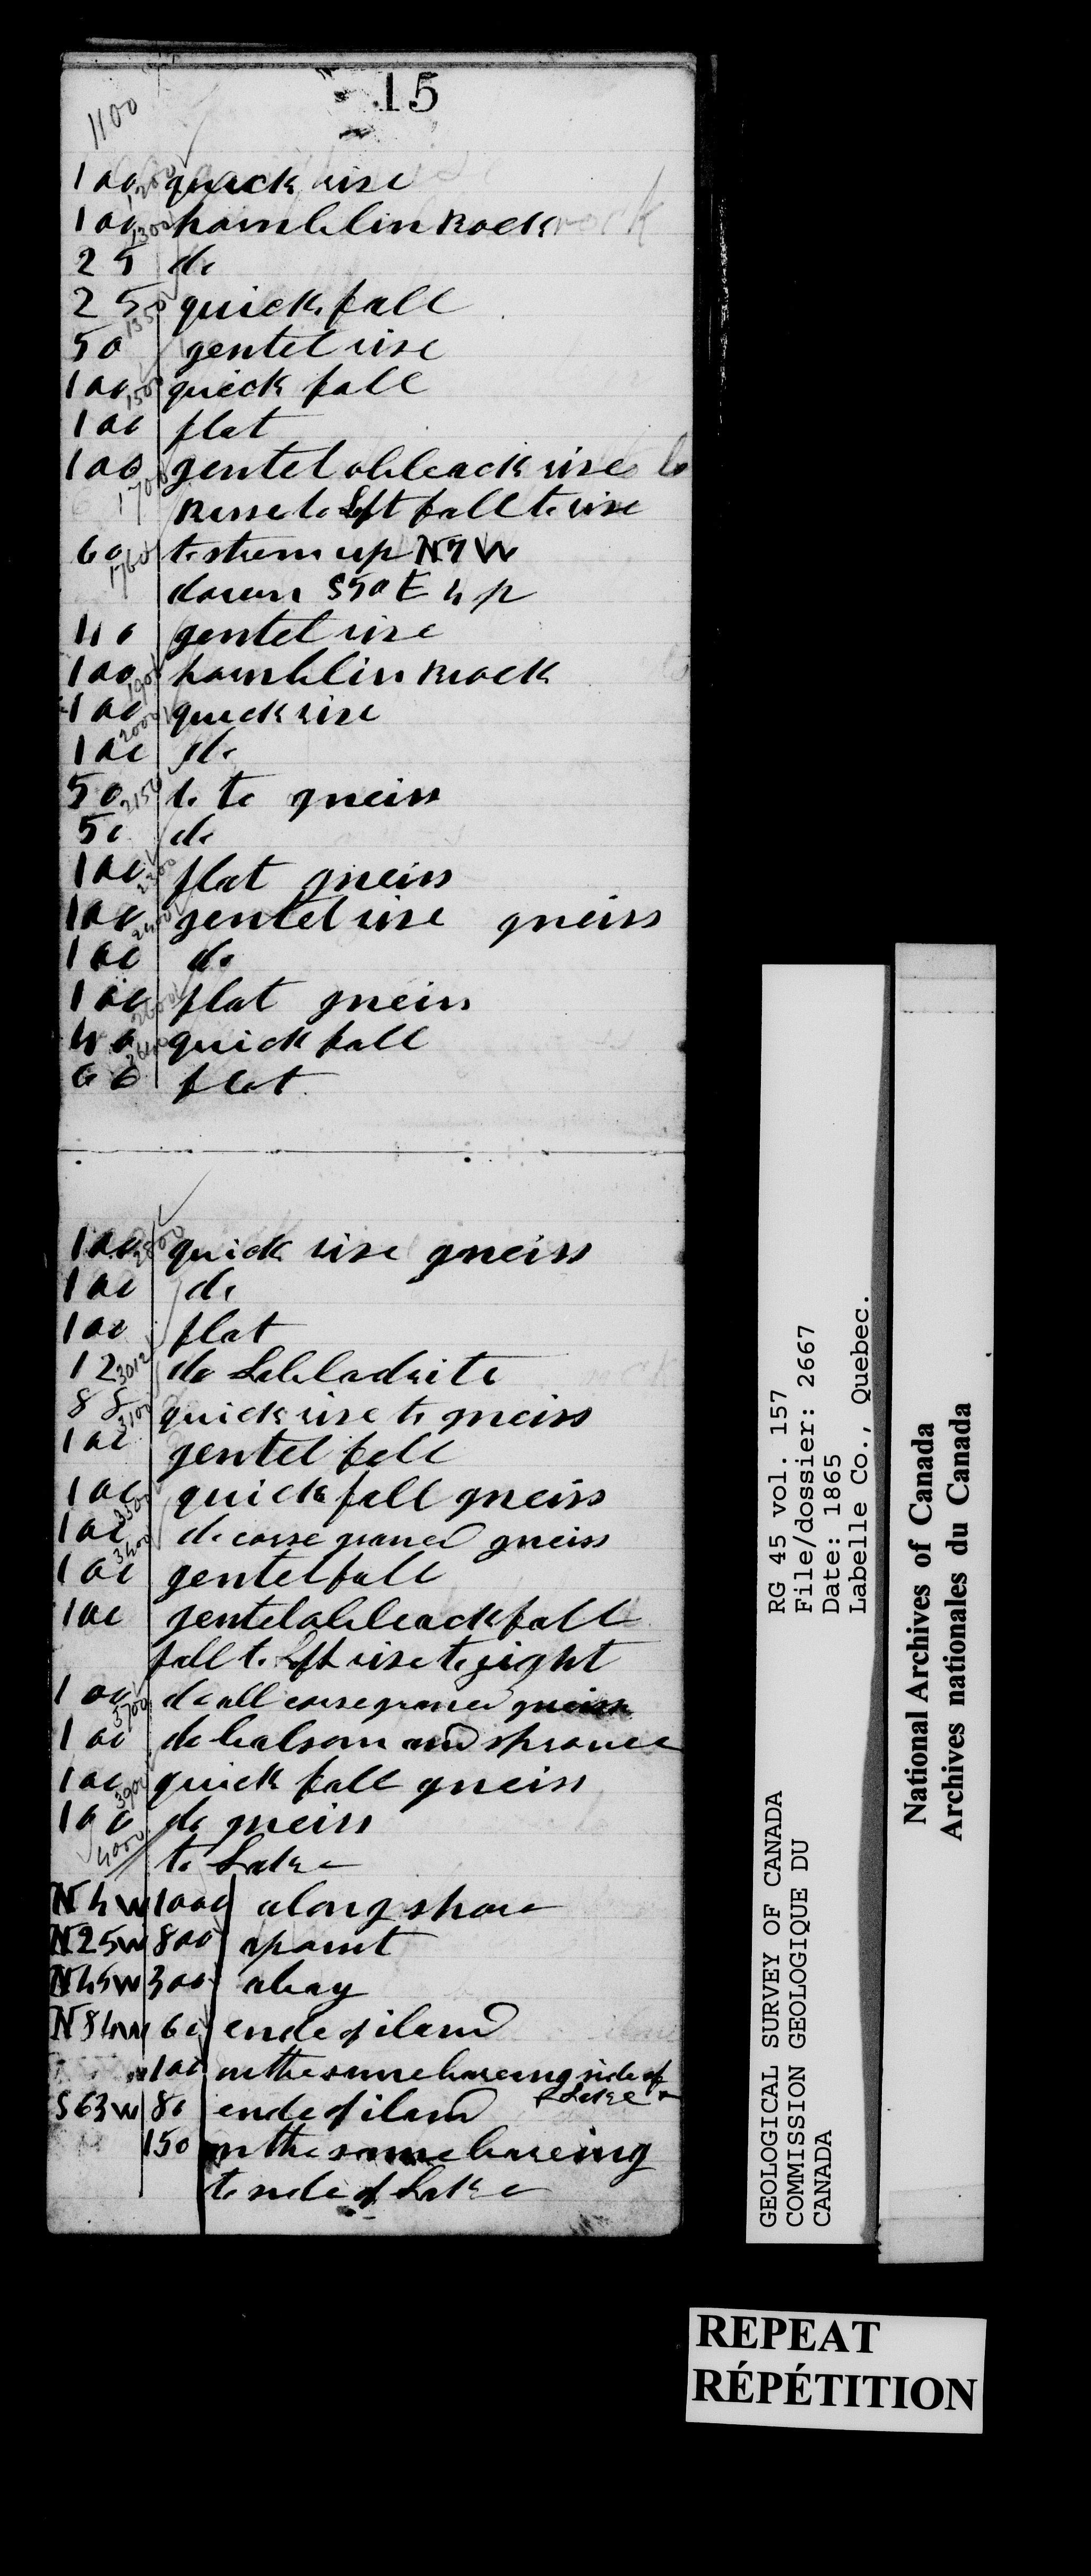 15
1100
100 1200 quick rise
100 1300 hornblin Rock
25 do
25 1350 quick fall
50 gentel rise
100 1500 quick fall
100 flat
100 gentel obleack rise
1700 Left fall to rise
60 1760 to strem up N7W
down S50E 4 p
40 gentel rise
100 1900 hornblin Rock
100 2000 quick rise
100 do
50 2150 do to gneiss
50 do
100 2300 flat gneiss
100 2400 gentel rise gneiss
100 do
100 2600 flat gneiss
40 2640 quick fall
60 flat
100 2800 quick rise gneiss
100 do
100 flat
12 3012 do Labladrite
88 3100 quick rise to gneiss
100 gentel fall
100 3300 quick fall gneiss
100 3400 do corse graned gneiss
100 gentel fall
100 gentel obleack fall
fall to Left rise to right
100 3700 do all corse graned gneiss
100 do balsom and sprouce
100 3900 quick fall gneiss
100 do gneiss
4000 to Lake
N4W 1000 along shore
N25W 800 apoint
N45W 300 abay
N84W 60 ende of iland
100 on the same bareing side of Lake
S63W 80 ende of iland
150 on the same bareing
to side of Lake
GEOLOGICAL SURVEY OF CANADA
COMMISSION GEOLOGIQUE DU
CANADA
RG 45 vol. 157
File/dossier: 2667
Date: 1865
Labelle Co., Quebec.
National Archives of Canada
Archives nationales du Canada
REPEAT
RÉPÉTITION